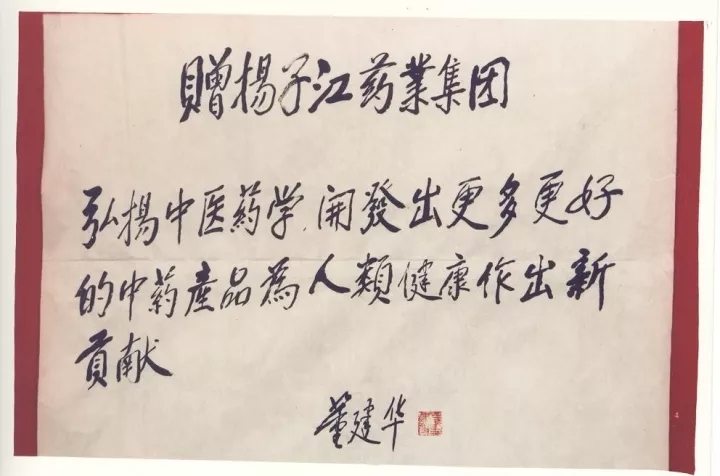 贈揚子江药業集团
弘揚中医药学、開發出更多更好
的中药產品為人類健康作出新
貢献
董建华